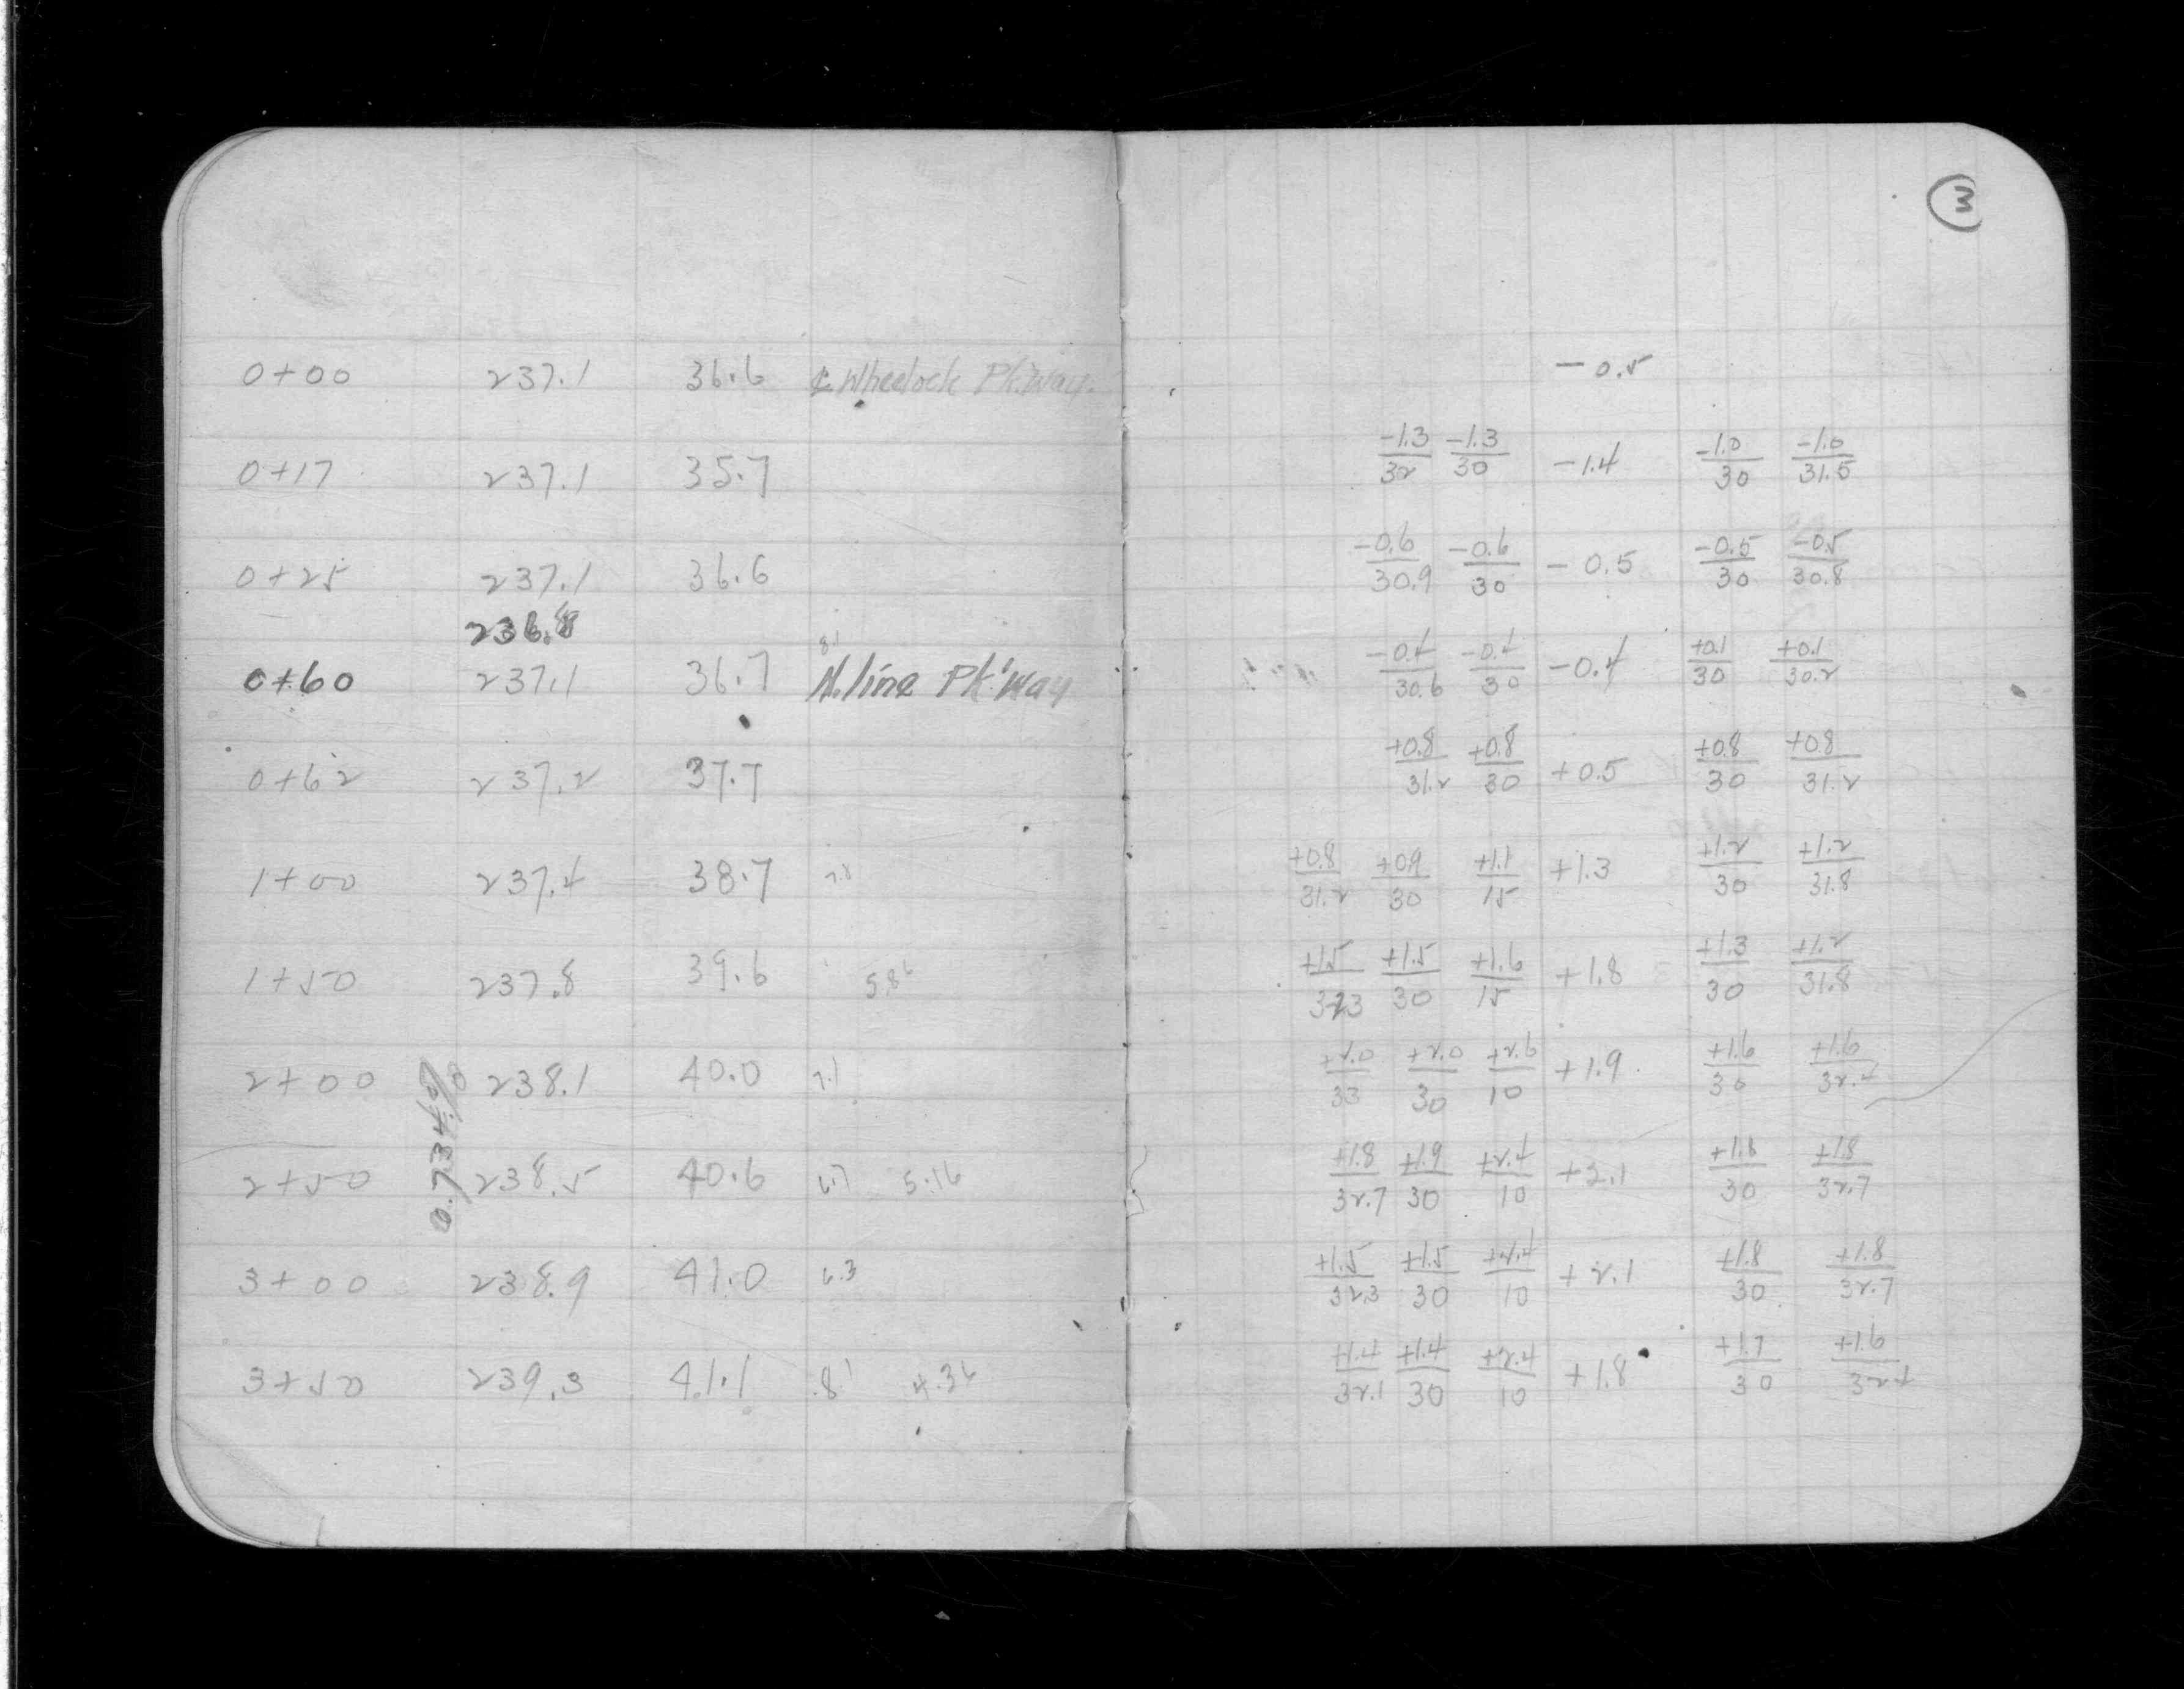 3
0+00 237.1 36.6 ℄ Wheelock Pk'way. -0.5
0+17 237.1 35.7 -1.3/32 -1.3/30 -1.4 -1.0/30 -1.0/31.5
0+25 237.1 36.6 -0.6/30.9 -0.6/30 -0.5 -0.5/30 -0.5/30.8
236.8
0+60 237.1 36.7 N. line Pk'way -0.4/30.6 -0.4/30 -0.4 +0.1/30 +0.1/30.2
0+62 237.2 37.7 +0.8/31.2 +0.8/30 +0.5 +0.8/30 +0.8/31.2
1+00 237.4 38.7 +0.8/31.2 +0.9/30 +1.1/15 +1.3 +1.2/30 +1.2/31.8
1+50 237.8 39.6 5.86 +1.5/32.3 +1.5/30 +1.6/15 +1.8 +1.3/30 +1.2/31.8
2+00 238.1 40.0 7.1 +2.0/33 +2.0/30 +2.6/10 +1.9 +1.6/30 +1.6/32.4
0.734%
2+50 238.5 40.6 6.7 5.16 +1.8/32.7 +1.9/30 +2.4/10 +2.1 +1.8/30 +1.8/32.7
3+00 238.9 41.0 6.3 +1.5/32.3 +1.5/30 +2.4/10 +2.1 +1.8/30 +1.8/32.7
3+50 239.3 41.1 4.36 +1.4/32.1 +1.4/30 +2.4/10 +1.8 +1.7/30 +1.6/32.4